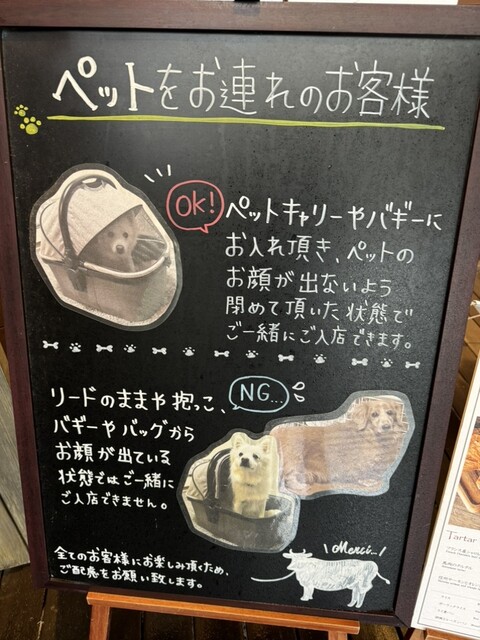 ペットをお連れのお客様
OK!
ペットキャリーやバギーに
お入れ頂き、ペットの
お顔が出ないよう
閉めて頂いた状態で
ご一緒にご入店できます。
NG...
リードのままや抱っこ、
バギーやバッグから
お顔が出ている
状態ではご一緒に
ご入店できません。
全てのお客様にお楽しみ頂くため、
ご配慮をお願い致します。
Merci...
Tartar